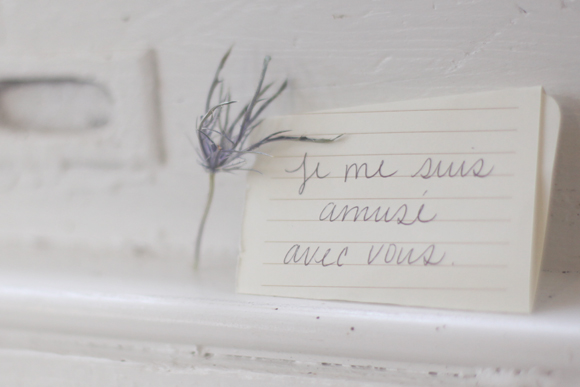 je me suis
amusé
avec vous.